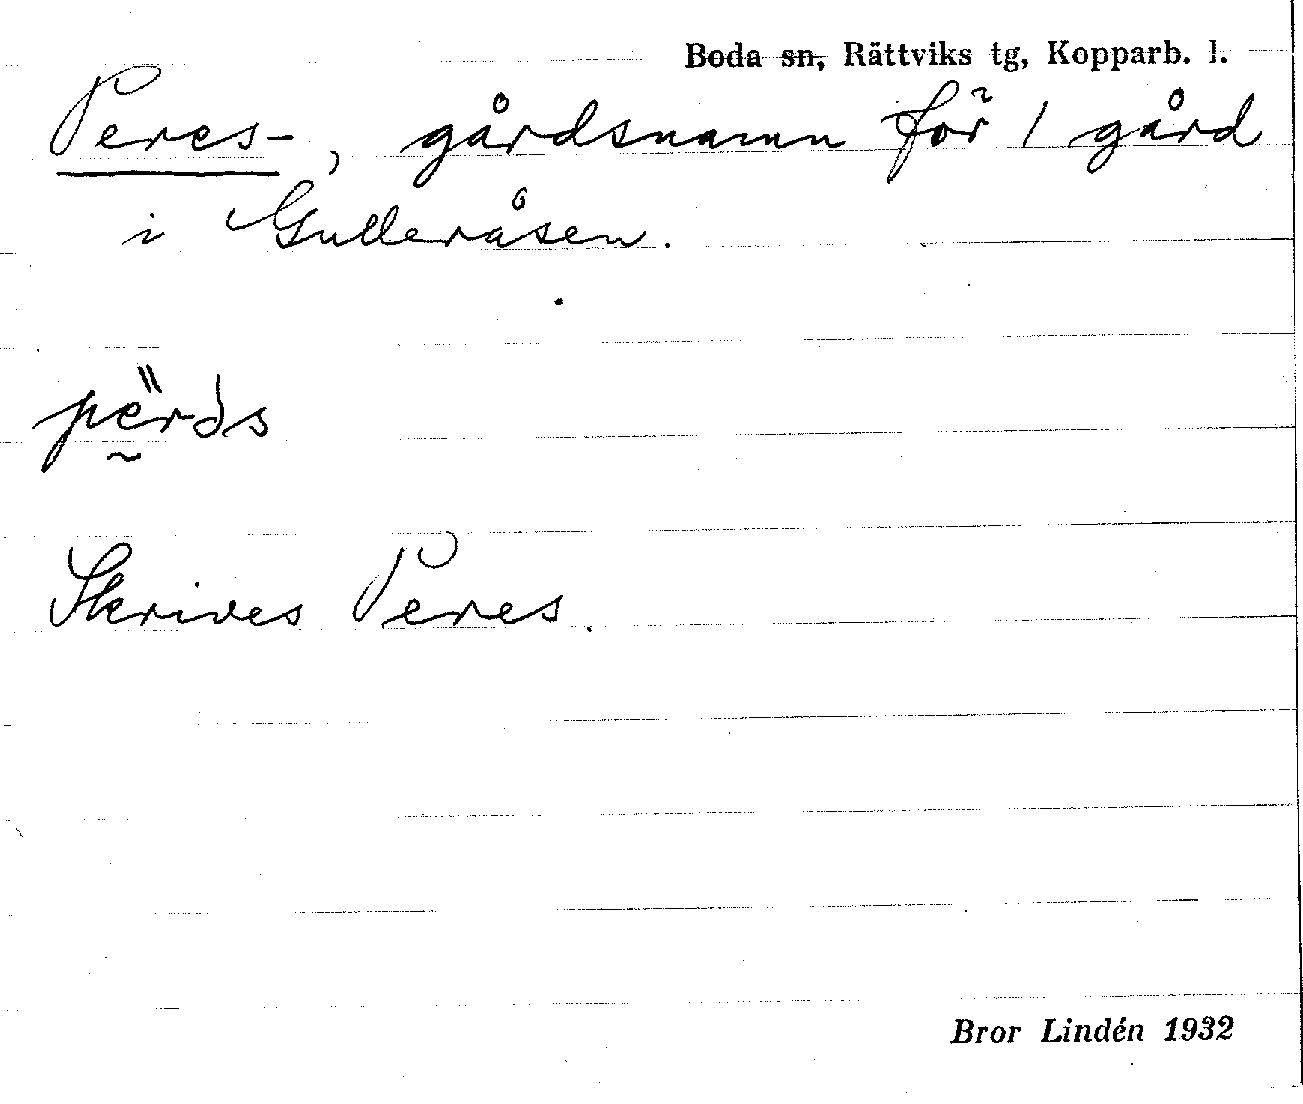 Boda sn, Rättviks tg, Kopparb. l.
Peres-, gårdsnamn för 1 gård
i Gulleråsen.
Skrives Peres.
Bror Lindén 1932